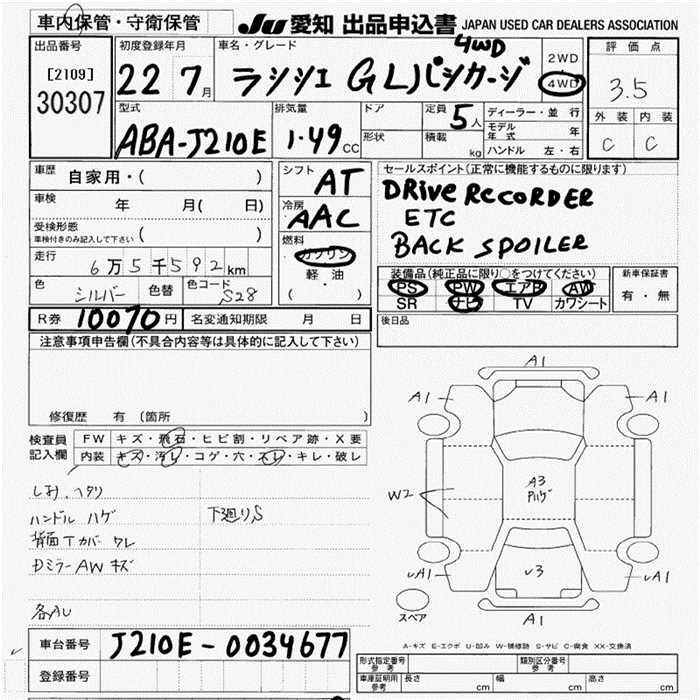 車内保管・守衛保管
JU 愛知 出品申込書 JAPAN USED CAR DEALERS ASSOCIATION
出品番号
[2109]
30307
初度登録年月
22 7月
車名・グレード
4WD
ラシシエ GLパンカージ
2WD
4WD
評価点
3.5
外装 内装
C C
型式
ABA-J210E
排気量
1.49 CC
ドア
形状
定員 5人
積載 kg
ディーラー・並行
モデル年式 年
ハンドル 左・右
車歴 自家用・( )
車検 年 月( 日)
受検形態
車検付きのみ記入して下さい ( )
走行
6万5千592km
色 シルバー 色替 色コード S28
シフト AT
冷房 AAC
燃料
ガソリン
軽油
( )
セールスポイント(正常に機能するものに限ります)
DRIVE RECORDER
ETC
BACK SPOILER
装備品(純正品に限り○をつけてください)
PS PW エアB AW
SR ナビ TV カワシート
新車保証書
有・無
R券 10070円 名変通知期限 月 日
後日品
注意事項申告欄(不具合内容等は具体的に記入して下さい)
修復歴 有(箇所 )
検査員記入欄
FW キズ・飛石・ヒビ割・リペア跡・X要
内装 キズ・汚レ・コゲ・穴・スレ・キレ・破レ
ハンドル ハゲ
下廻りS
背面Tカバー ワレ
DミラーAW キズ
各AU
A1
A1
A1
W2
A3
ハゲ
✓3
✓A1
✓A1
A1
スペア
A-キズ E-エクボ U-凹み W-補修跡 S-サビ C-腐食 XX-交換済
車台番号 J210E-0034677
登録番号
形式指定番号 参考
類別区分番号 参考
車庫証明用 参考 長さ cm 幅 cm 高さ cm